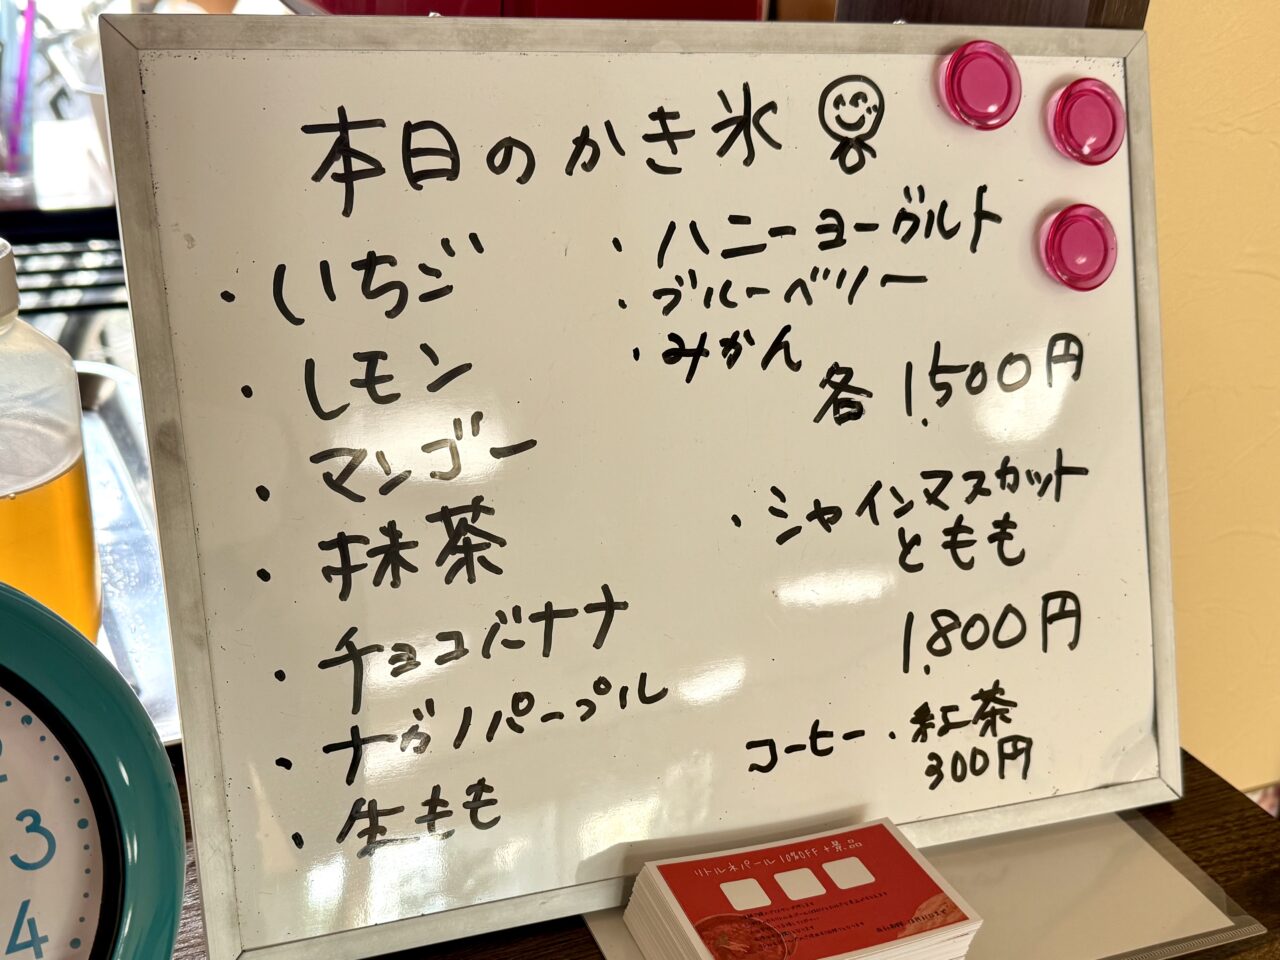 本日のかき氷
・いちご
・レモン
・マンゴー
・抹茶
・チョコバナナ
・ナガノパープル
・生もも
・ハニーヨーグルト
・ブルーベリー
・みかん
各 1,500円
・シャインマスカット
ともも
1,800円
コーヒー・紅茶
300円
リトルネパール 10%OFF+景品
3
4